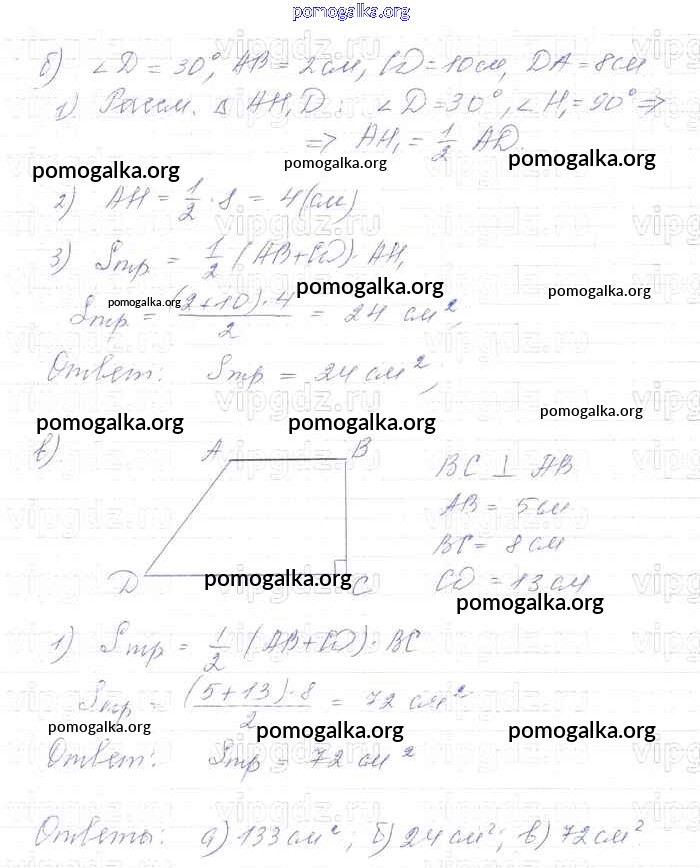 pomogalka.org
б) ∠D = 30°, AB = 2 см, CD = 10 см, DA = 8 см
1) Рассм. △ AH₁D: ∠D = 30°, ∠H₁ = 90° ⇒
⇒ AH₁ = 1/2 AD.
pomogalka.org pomogalka.org pomogalka.org
2) AH = 1/2 · 8 = 4 (см)
3) Sтр = 1/2 (AB + CD) · AH₁
pomogalka.org pomogalka.org pomogalka.org
Sтр. = (2+10)·4/2 = 24 см²,
Ответ: Sтр = 24 см²;
pomogalka.org pomogalka.org pomogalka.org
в) A B
BC ⊥ AB
AB = 5 см
BC = 8 см
D C CD = 13 см
pomogalka.org pomogalka.org
1) Sтр = 1/2 (AB + CD) · BC
Sтр = (5+13)·8/2 = 72 см²
pomogalka.org pomogalka.org pomogalka.org
Ответ: Sтр = 72 см²
Ответы: а) 133 см²; б) 24 см²; в) 72 см²